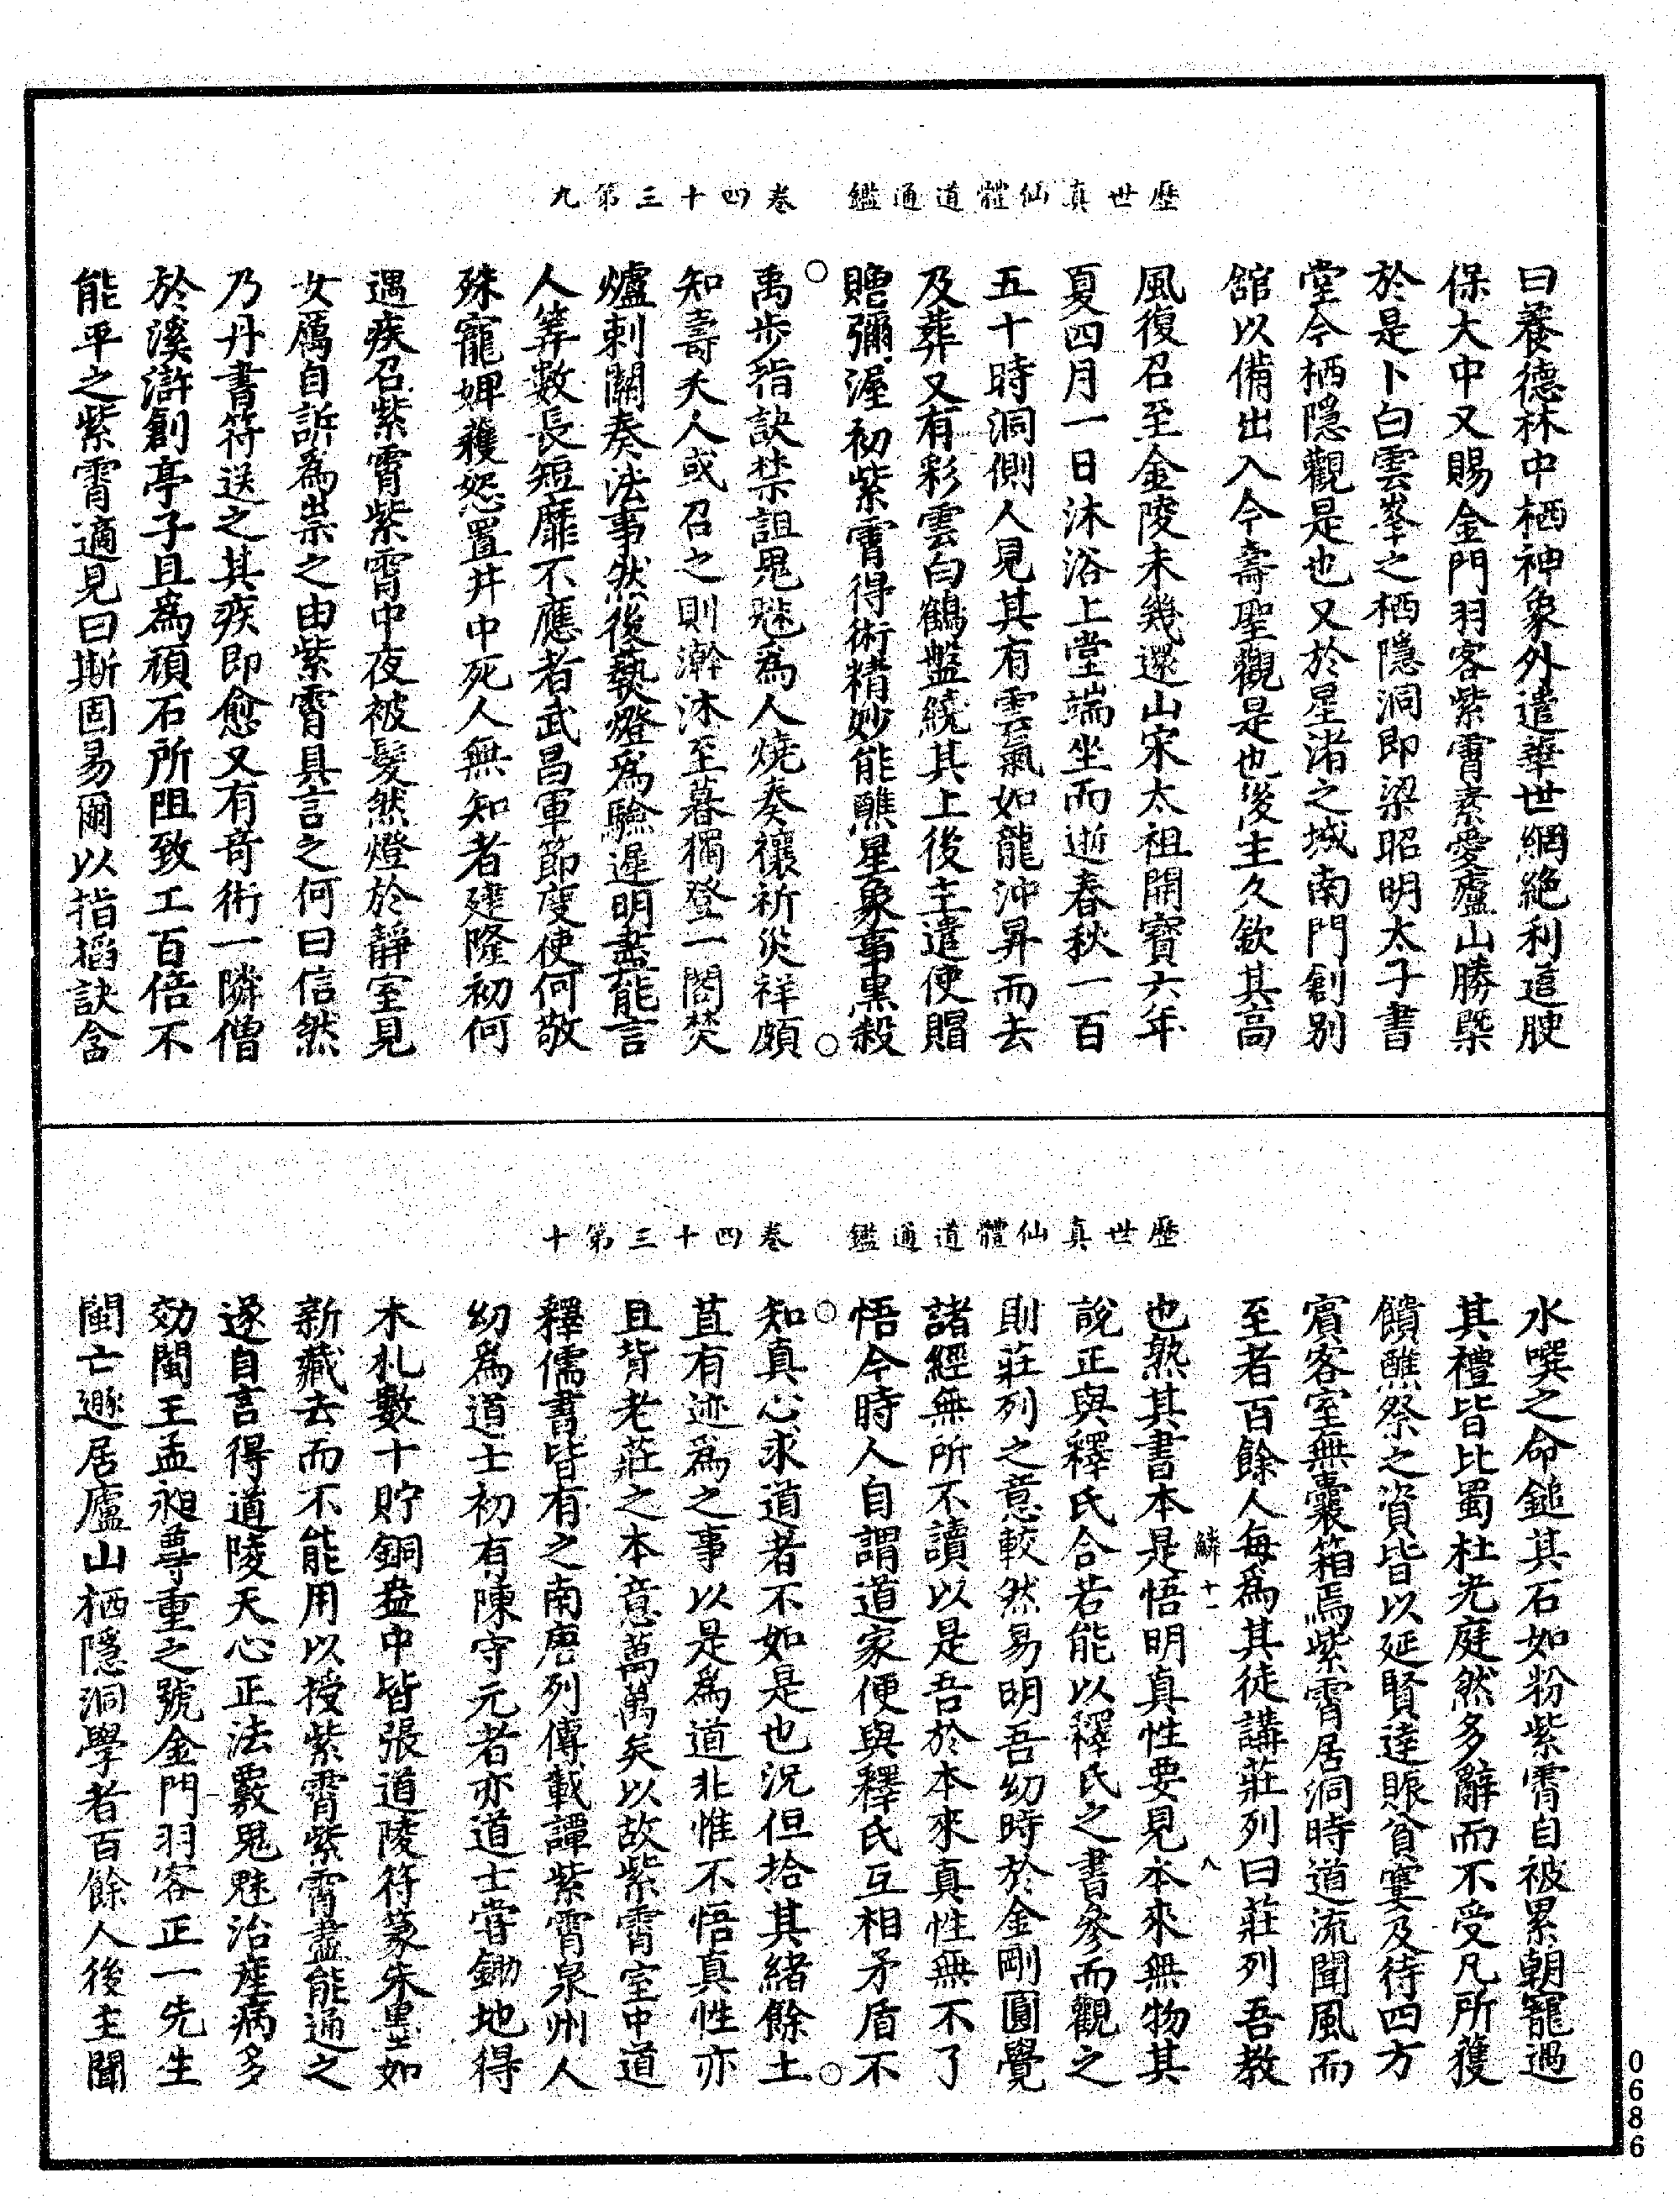 歷世真仙體道通鑑　卷四十三第九
曰養德林中栖神象外遣華世網絶利逭腴
保大中又賜金門羽客紫霄素愛廬山勝槩
於是卜白雲峯之栖隱洞即梁昭明太子書
堂今栖隱觀是也又於星渚之城南門創别
舘以備出入今壽聖觀是也後主久欽其高
風復召至金陵未幾還山宋太祖開寶六年
夏四月一日沐浴上堂端坐而逝春秋一百
五十時洞側人見其有雲氣如龍沖昇而去
及葬又有彩雲白鶴盤繞其上後主遣使賵
贈彌渥初紫霄得術精妙能醮星象事黒殺
禹步指訣禁詛鬼魅為人燒奏禳祈災祥頗
知壽夭人或召之則澣沐至暮獨登一閣焚
爐刺闢奏法事然後蓺燈為驗遲明盡能言
人筭數長短靡不應者武昌軍節度使何敬
殊寵婢蘀怨置井中死人無知者建隆初何
遇疾召紫霄紫霄中夜被髮然燈於靜室見
女厲自訴為祟之由紫霄具言之何曰信然
乃丹書符送之其疾即愈又有竒術一隣僧
於溪滸創亭子且為頑石所阻致工百倍不
能平之紫霄適見曰斯固易爾以指搯訣含
歷世真仙體道通鑑　卷四十三第十
水噀之命鎚其石如粉紫霄自被累朝寵遇
其禮皆比蜀杜光庭然多辭而不受凡所獲
饋醮祭之資皆以延賢達賑貧窶及待四方
賓客室無囊箱焉紫霄居洞時道流聞風而
至者百餘人每為其徒講莊列曰莊列吾教
鱗十一　八
也熟其書本是悟明真性要見本來無物其
說正與釋氏合若能以釋氏之書參而觀之
則莊列之意較然易明吾幼時於金剛圓覺
諸經無所不讀以是吾於本來真性無不了
悟今時人自謂道家便與釋氏互相矛盾不
知真心求道者不如是也况但拾其緒餘土
苴有迹為之事以是為道非惟不悟真性亦
且背老莊之本意萬萬矣以故紫霄室中道
釋儒書皆有之南唐列傳載譚紫霄泉州人
幼為道士初有陳守元者亦道士嘗鋤地得
木札數十貯銅盎中皆張道陵符篆朱墨如
新藏去而不能用以授紫霄紫霄盡能通之
遂自言得道陵天心正法覈鬼魅治産病多
効閩王孟昶尊重之號金門羽客正一先生
閩亡遯居廬山栖隱洞學者百餘人後主聞
0686